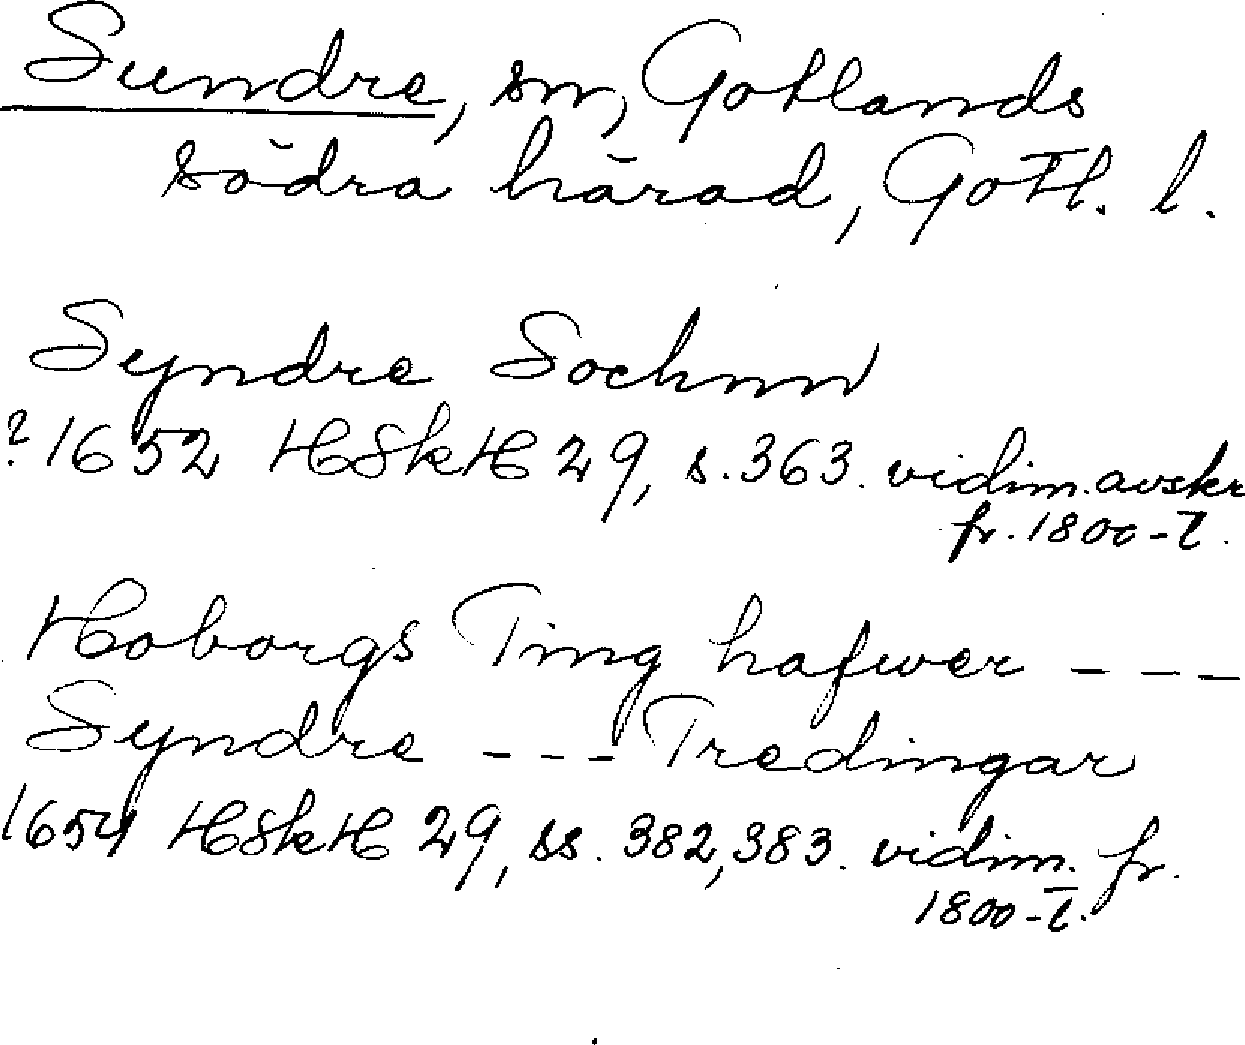 Sundre, sn, Gotlands
södra härad, Gotl. l.
Syndre Sochnn
? 1652 HSkH 29, s. 363. vidim. avskr
fr. 1800-t.
Hoborgs Ting hafwer ---
Syndre --- Tredingar
1654 HSkH 29, ss. 382, 383. vidim. fr.
1800-t.